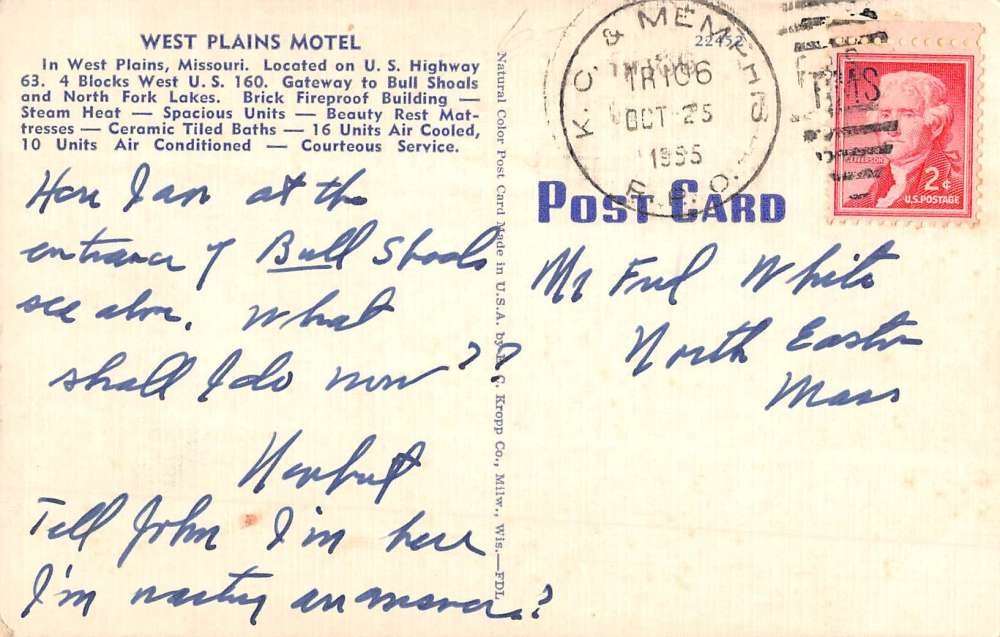 WEST PLAINS MOTEL
In West Plains, Missouri. Located on U. S. Highway
63. 4 Blocks West U. S. 160. Gateway to Bull Shoals
and North Fork Lakes. Brick Fireproof Building —
Steam Heat — Spacious Units — Beauty Rest Mat-
tresses — Ceramic Tiled Baths — 16 Units Air Cooled,
10 Units Air Conditioned — Courteous Service.
Here I am at the
entrance of Bull Shoals
see above. What
shall I do now??
Tell John I'm here
I'm waiting an answer?
Natural Color Post Card Made in U.S.A. by E. C. Kropp Co., Milw., Wis.—FDL
22452
K.C. & MEMPHIS
TR 106
OCT 25
1955
R.P.O.
JEFFERSON
2¢
U.S. POSTAGE
POST CARD
Mr Fred White
North Easton
Mass